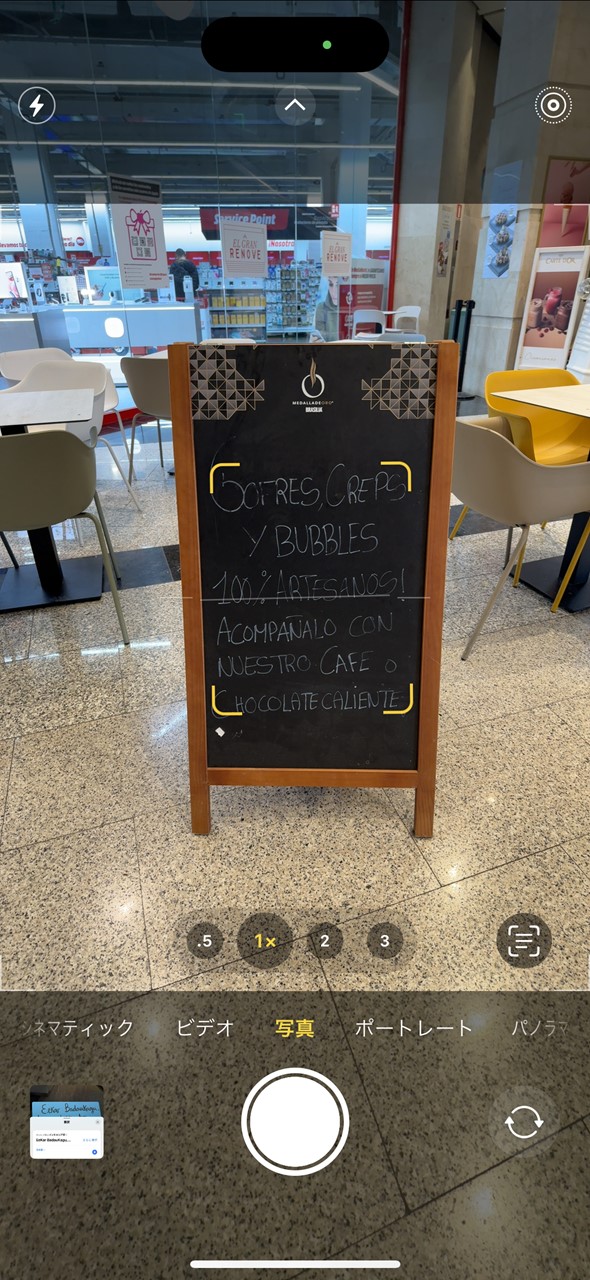 Service Point
EL GRAN
RENOVE
MEDALLADEORO
BRASILIA
GOFRES, CREPS
Y BUBBLES
100% ARTESANOS!
ACOMPAÑALO CON
NUESTRO CAFE o
CHOCOLATE CALIENTE
.5
1×
2
3
ネマティック
ビデオ
写真
ポートレート
パノラマ